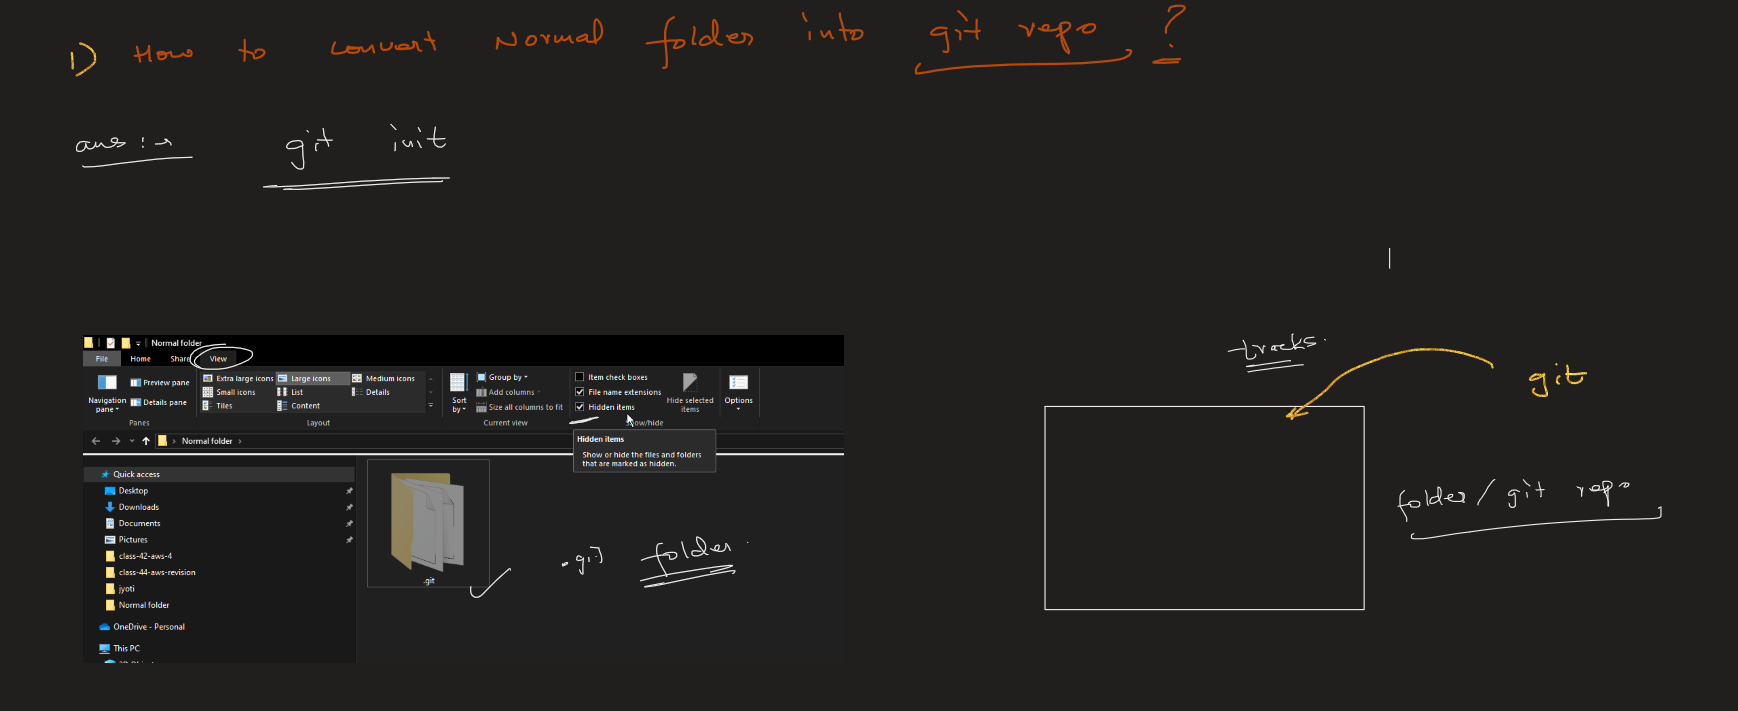 1) How to convert Normal folder into git repo ?
ans :→ git init
Normal folder
File Home Share View
Navigation pane
Preview pane
Details pane
Panes
Extra large icons Large icons Medium icons
Small icons List Details
Tiles Content
Layout
Sort by
Group by
Add columns
Size all columns to fit
Current view
Item check boxes
File name extensions
Hidden items
Hide selected items
Show/hide
Options
Normal folder
Hidden items
Show or hide the files and folders
that are marked as hidden.
Quick access
Desktop
Downloads
Documents
Pictures
class-42-aws-4
class-44-aws-revision
jyoti
Normal folder
OneDrive - Personal
This PC
.git
.git folder.
tracks.
git
folder/git repo